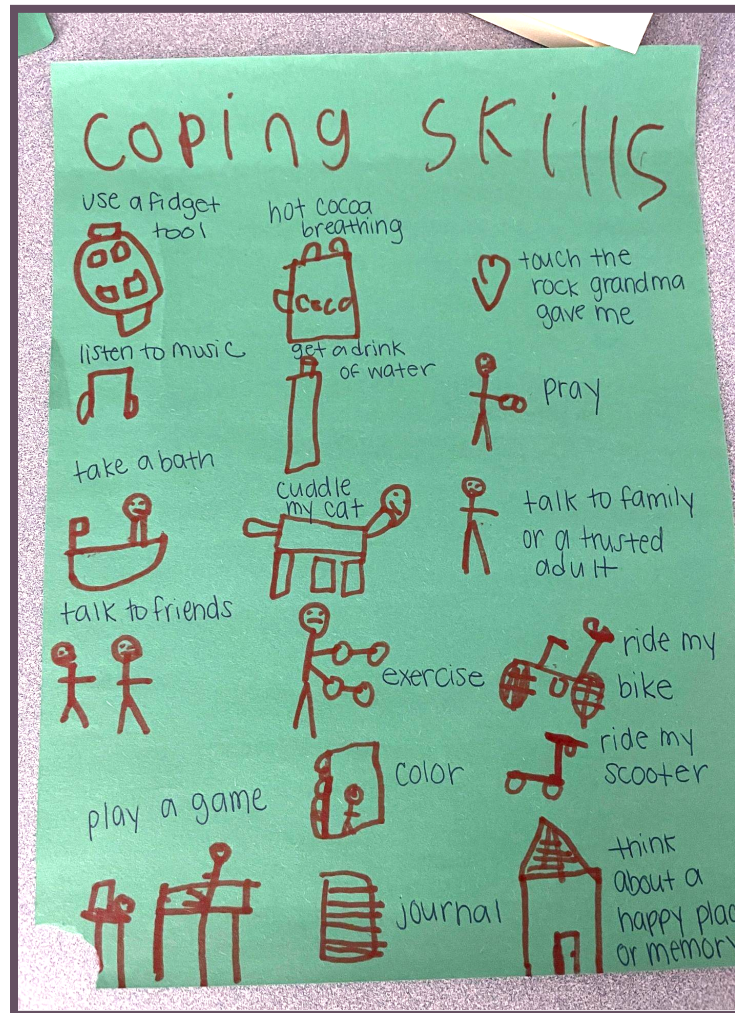 coping skills
use a fidget
tool
hot cocoa
breathing
coco
touch the
rock grandma
gave me
listen to music
get a drink
of water
pray
take a bath
cuddle
my cat
talk to family
or a trusted
adult
talk to friends
exercise
ride my
bike
color
ride my
scooter
play a game
journal
think
about a
happy plac
or memory